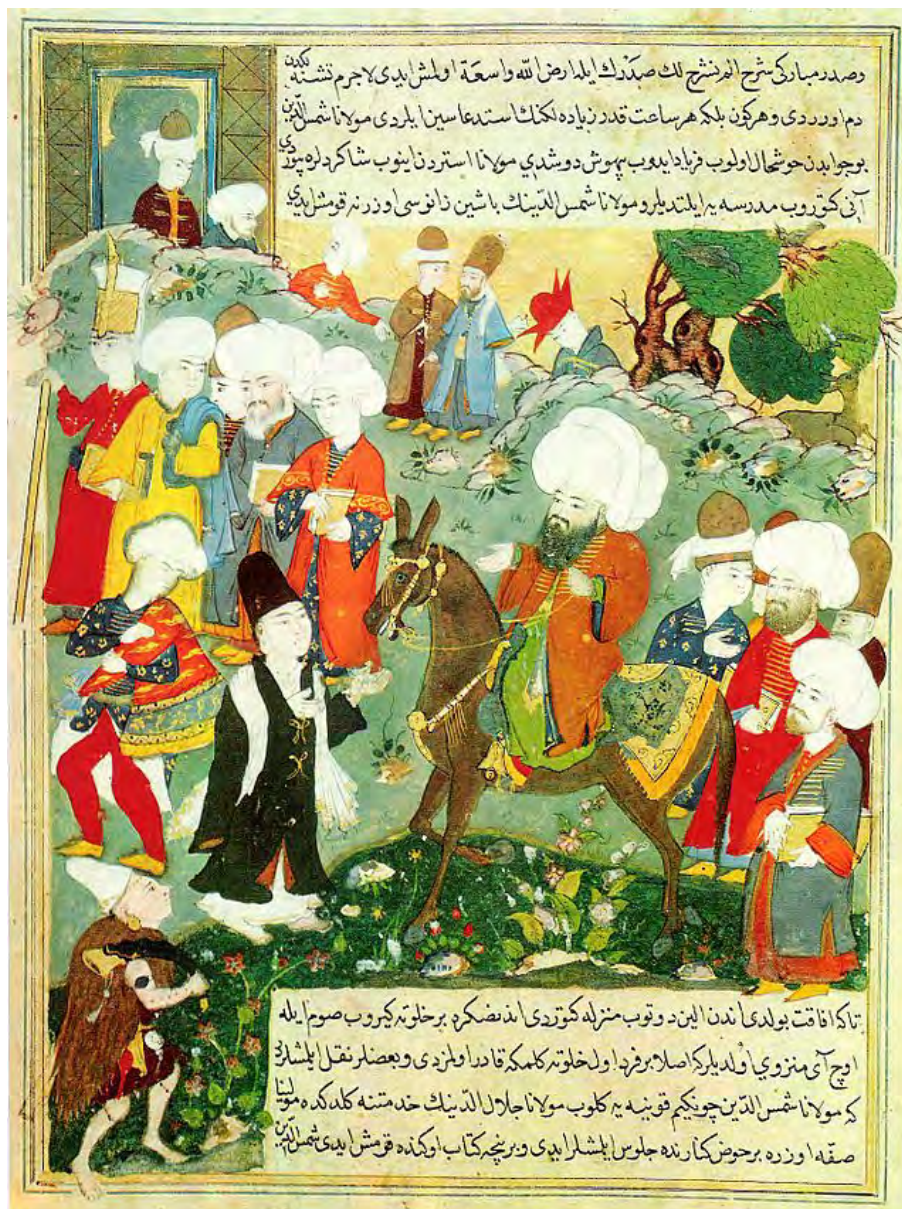 وصدر مباركی شرح الم نشرح لك صدرك ایله ارض الله واسعة اولمش ایدی لاجرم تشنه لكدن
دم اوردی وهركون بلكه هر ساعت قدر زیاده لكنك استدعاسین ایلردی مولانا شمس الدین
بو جوابدن خوشحال اولوب فریاد ایدوب بیهوش دوشدی مولانا استردن اینوب شاكردلره بیوردی
آنی كتوروب مدرسه یه ایلتدیلر و مولانا شمس الدینك باشین زانوسی اوزرنه قومش ایدی
تاكه افاقت بولدی اندن الین دوتوب منزله كوتردی اندنصكره بر خلوته كیروب صوم ایله
اوچ آی منزوی اولدیلر كه اصلا بر فرد اول خلوته كلمكه قادر اولمزدی و بعضلر نقل ایلمشلر
كه مولانا شمس الدین چونكیم قونیه یه كلوب مولانا جلال الدینك خدمتنه كلدكده مولانا
صفه اوزره بر حوض كنارنده جلوس ایلمشلر ایدی و برنیچه كتاب اوكنده قومش ایدی شمس الدین